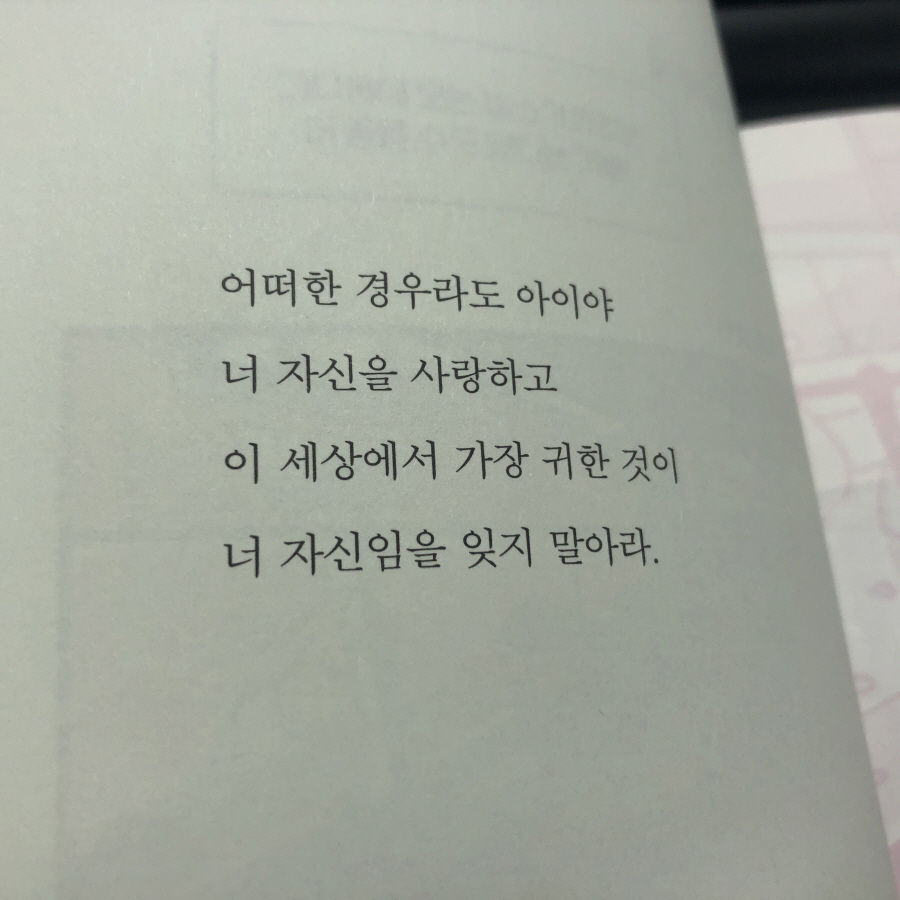 어떠한 경우라도 아이야
너 자신을 사랑하고
이 세상에서 가장 귀한 것이
너 자신임을 잊지 말아라.